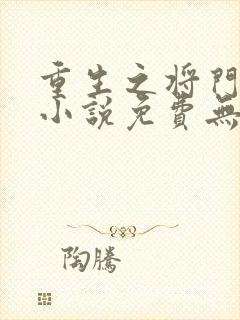 重生之将門
小說免費無
陶騰